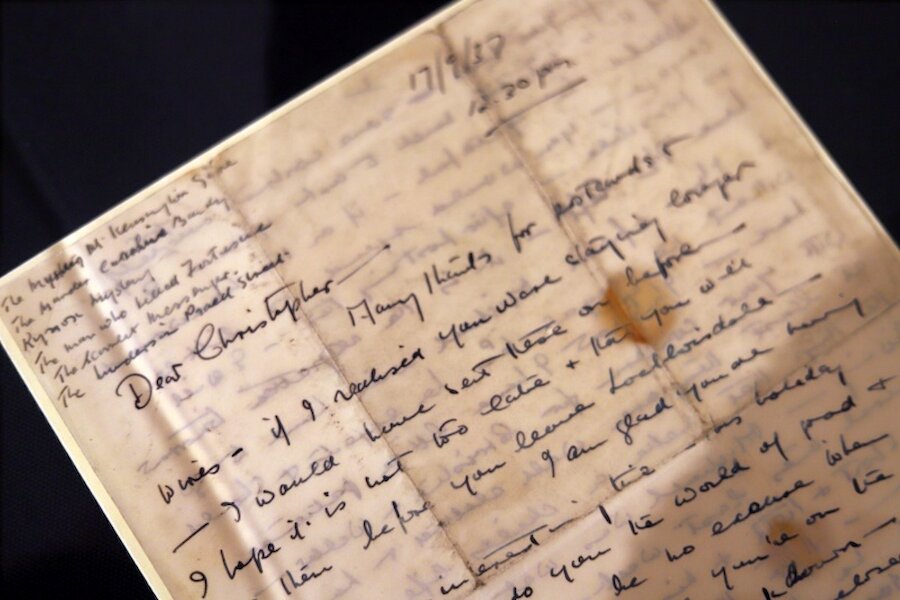 17/9/37
12.30 pm
The Mystery M. Kensington Gore
The Murder Caroline Bundy
Rymox Mystery
The man who killed Fortescue
The Scarlet Messenger.
The Murders in Praed Street.
Dear Christopher —
Many thanks for postcards &
wires – if I realised you were staying longer
— I would have sent these on before —
I hope it is not too late & that you will
them before you leave Lochboisdale —
I am glad you are having
interesting time holiday
do you the world of good &
be no excuse when
you're on the
kdown —
closed